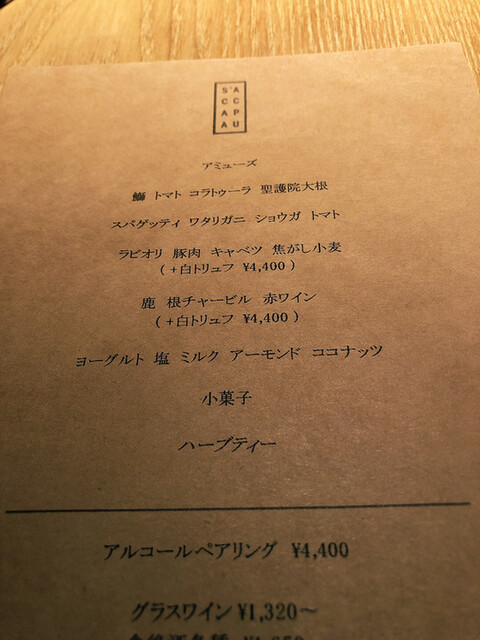 S'ACCAPAU
アミューズ
鰤 トマト コラトゥーラ 聖護院大根
スパゲッティ ワタリガニ ショウガ トマト
ラビオリ 豚肉 キャベツ 焦がし小麦
(+白トリュフ ¥4,400)
鹿 根チャービル 赤ワイン
(+白トリュフ ¥4,400)
ヨーグルト 塩 ミルク アーモンド ココナッツ
小菓子
ハーブティー
アルコールペアリング ¥4,400
グラスワイン¥1,320〜